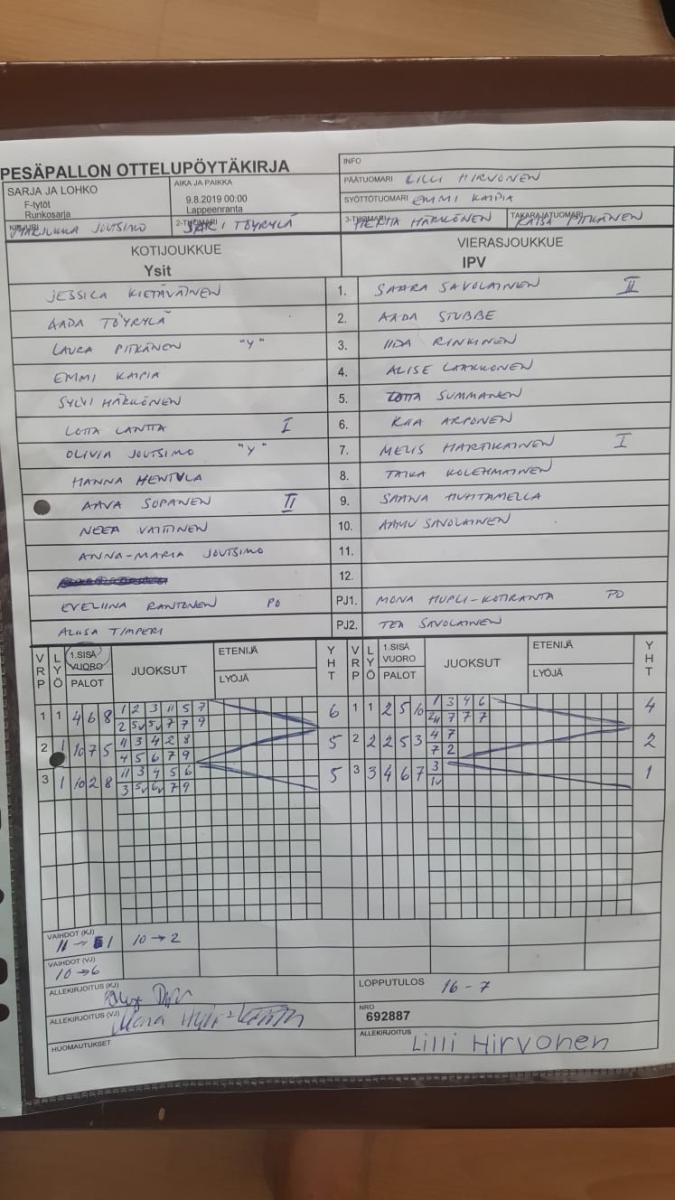 PESÄPALLON OTTELUPÖYTÄKIRJA
INFO
PÄÄTUOMARI LILLI HIRVONEN
SYÖTTÖTUOMARI EMMI KAIPIA
SARJA JA LOHKO
F-tytöt
Runkosarja
AIKA JA PAIKKA
9.8.2019 00:00
Lappeenranta
KIRJURI MARJUKKA JOUTSIMO
2-TUOMARI SARI TÖYRYLÄ
3-TUOMARI HÄRKÖNEN
TAKARAJATUOMARI KAISA PITKÄNEN
KOTIJOUKKUE
Ysit
VIERASJOUKKUE
IPV
JESSICA KIETÄVÄINEN 1. SAARA SAVOLAINEN II
AADA TÖYRYLÄ 2. AADA STUBBE
LAURA PITKÄNEN "Y" 3. IIDA RINKINEN
EMMI KAIPIA 4. ALISE LAAKKONEN
SYLVI HÄRKÖNEN 5. LOTTA SUMMANEN
LOTTA LANTTA I 6. KIIA ARPONEN
OLIVIA JOUTSIMO "Y" 7. MELIS MARTIKAINEN I
HANNA HENTULA 8. TAIKA KOLEHMAINEN
AAVA SOPANEN II 9. SAANA HUHTAMELLA
NEEA VAITTINEN 10. AAMU SAVOLAINEN
ANNA-MARIA JOUTSIMO 11.
12.
EVELIINA RANTONEN PO PJ1. MONA HUPLI-KOTIRANTA PO
ALIISA TIMPERI PJ2. TEA SAVOLAINEN
VRP LYÖ 1.SISÄ VUORO PALOT JUOKSUT ETENIJÄ LYÖJÄ YHT VRP LYÖ 1.SISÄ VUORO PALOT JUOKSUT ETENIJÄ LYÖJÄ YHT
1 1 4 6 8 1 2 3 11 5 7 6 1 1 2 5 10 1 3 4 6 4
2 5v 5v 7 7 9 7 7 7
2 1 10 7 5 11 3 4 2 8 5 2 2 2 5 3 4 7 2
4 5 6 7 9 7 2
3 1 10 2 8 11 3 4 5 6 5 3 3 4 6 7 3 1
3 5v 6v 7 9 1v
VAIHDOT (KJ)
11 → 1 10 → 2
VAIHDOT (VJ)
10 → 6
ALLEKIRJOITUS (KJ)
LOPPUTULOS 16 - 7
ALLEKIRJOITUS (VJ) Mona
NRO
692887
HUOMAUTUKSET
ALLEKIRJOITUS Lilli Hirvonen